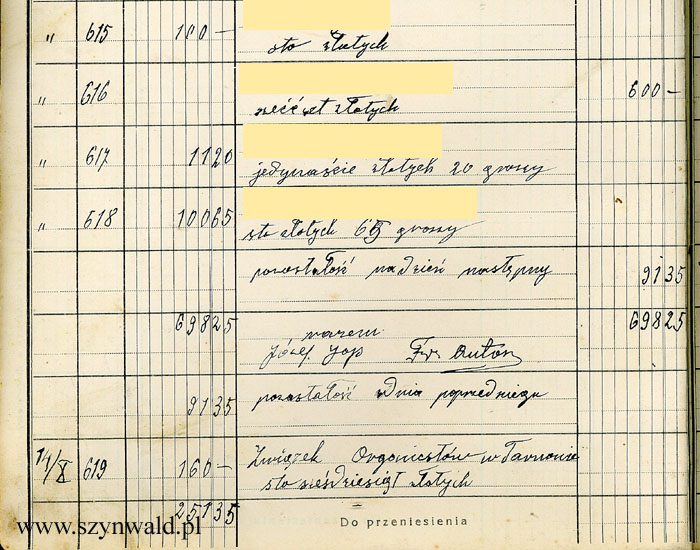 " 615 100 –
sto złotych
" 616 600 –
sześćset złotych
" 617 11 20
jedynaście złotych 20 groszy
" 618 100 65
sto złotych 65 groszy
pozostałość na dzień następny 91 35
698 25 razem 698 25
Józef Jop Fr.
91 35 pozostałość z dnia poprzedniego
619 160 – Związek Organistów w Tarnowie
sto sześdziesiąt złotych
251 35
Do przeniesienia
www.szynwald.pl